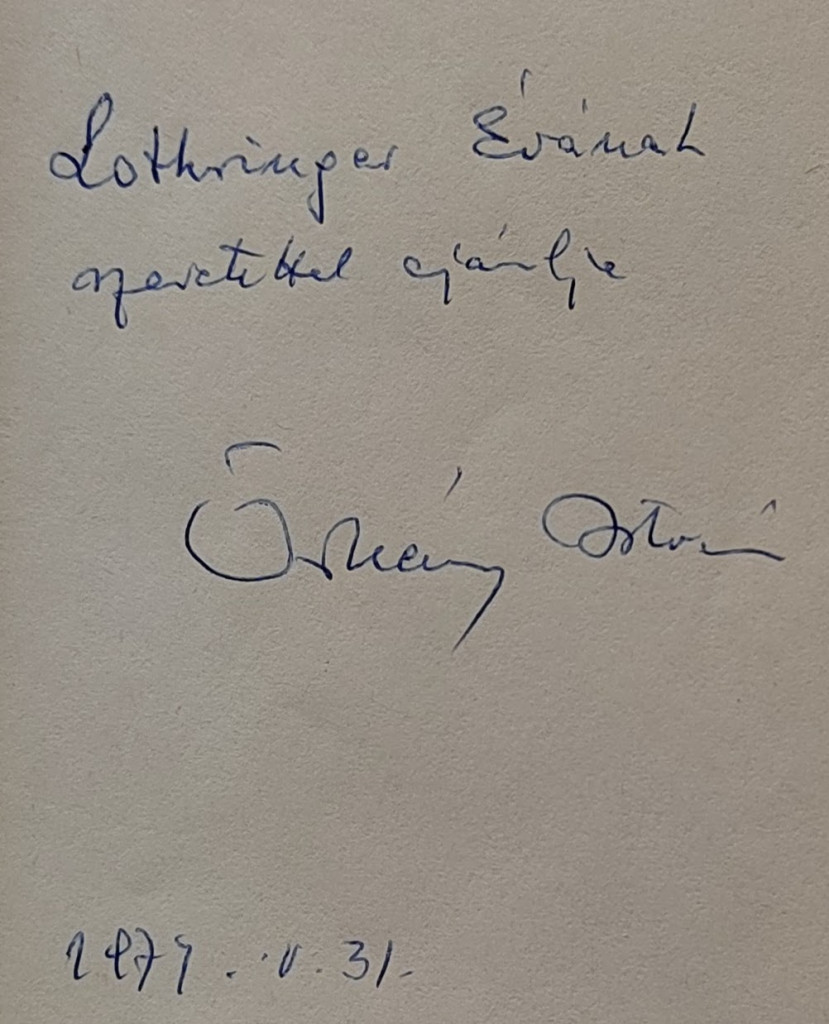 Lothringer Évának
szeretettel ajánlja
Örkény István
1979. V. 31.